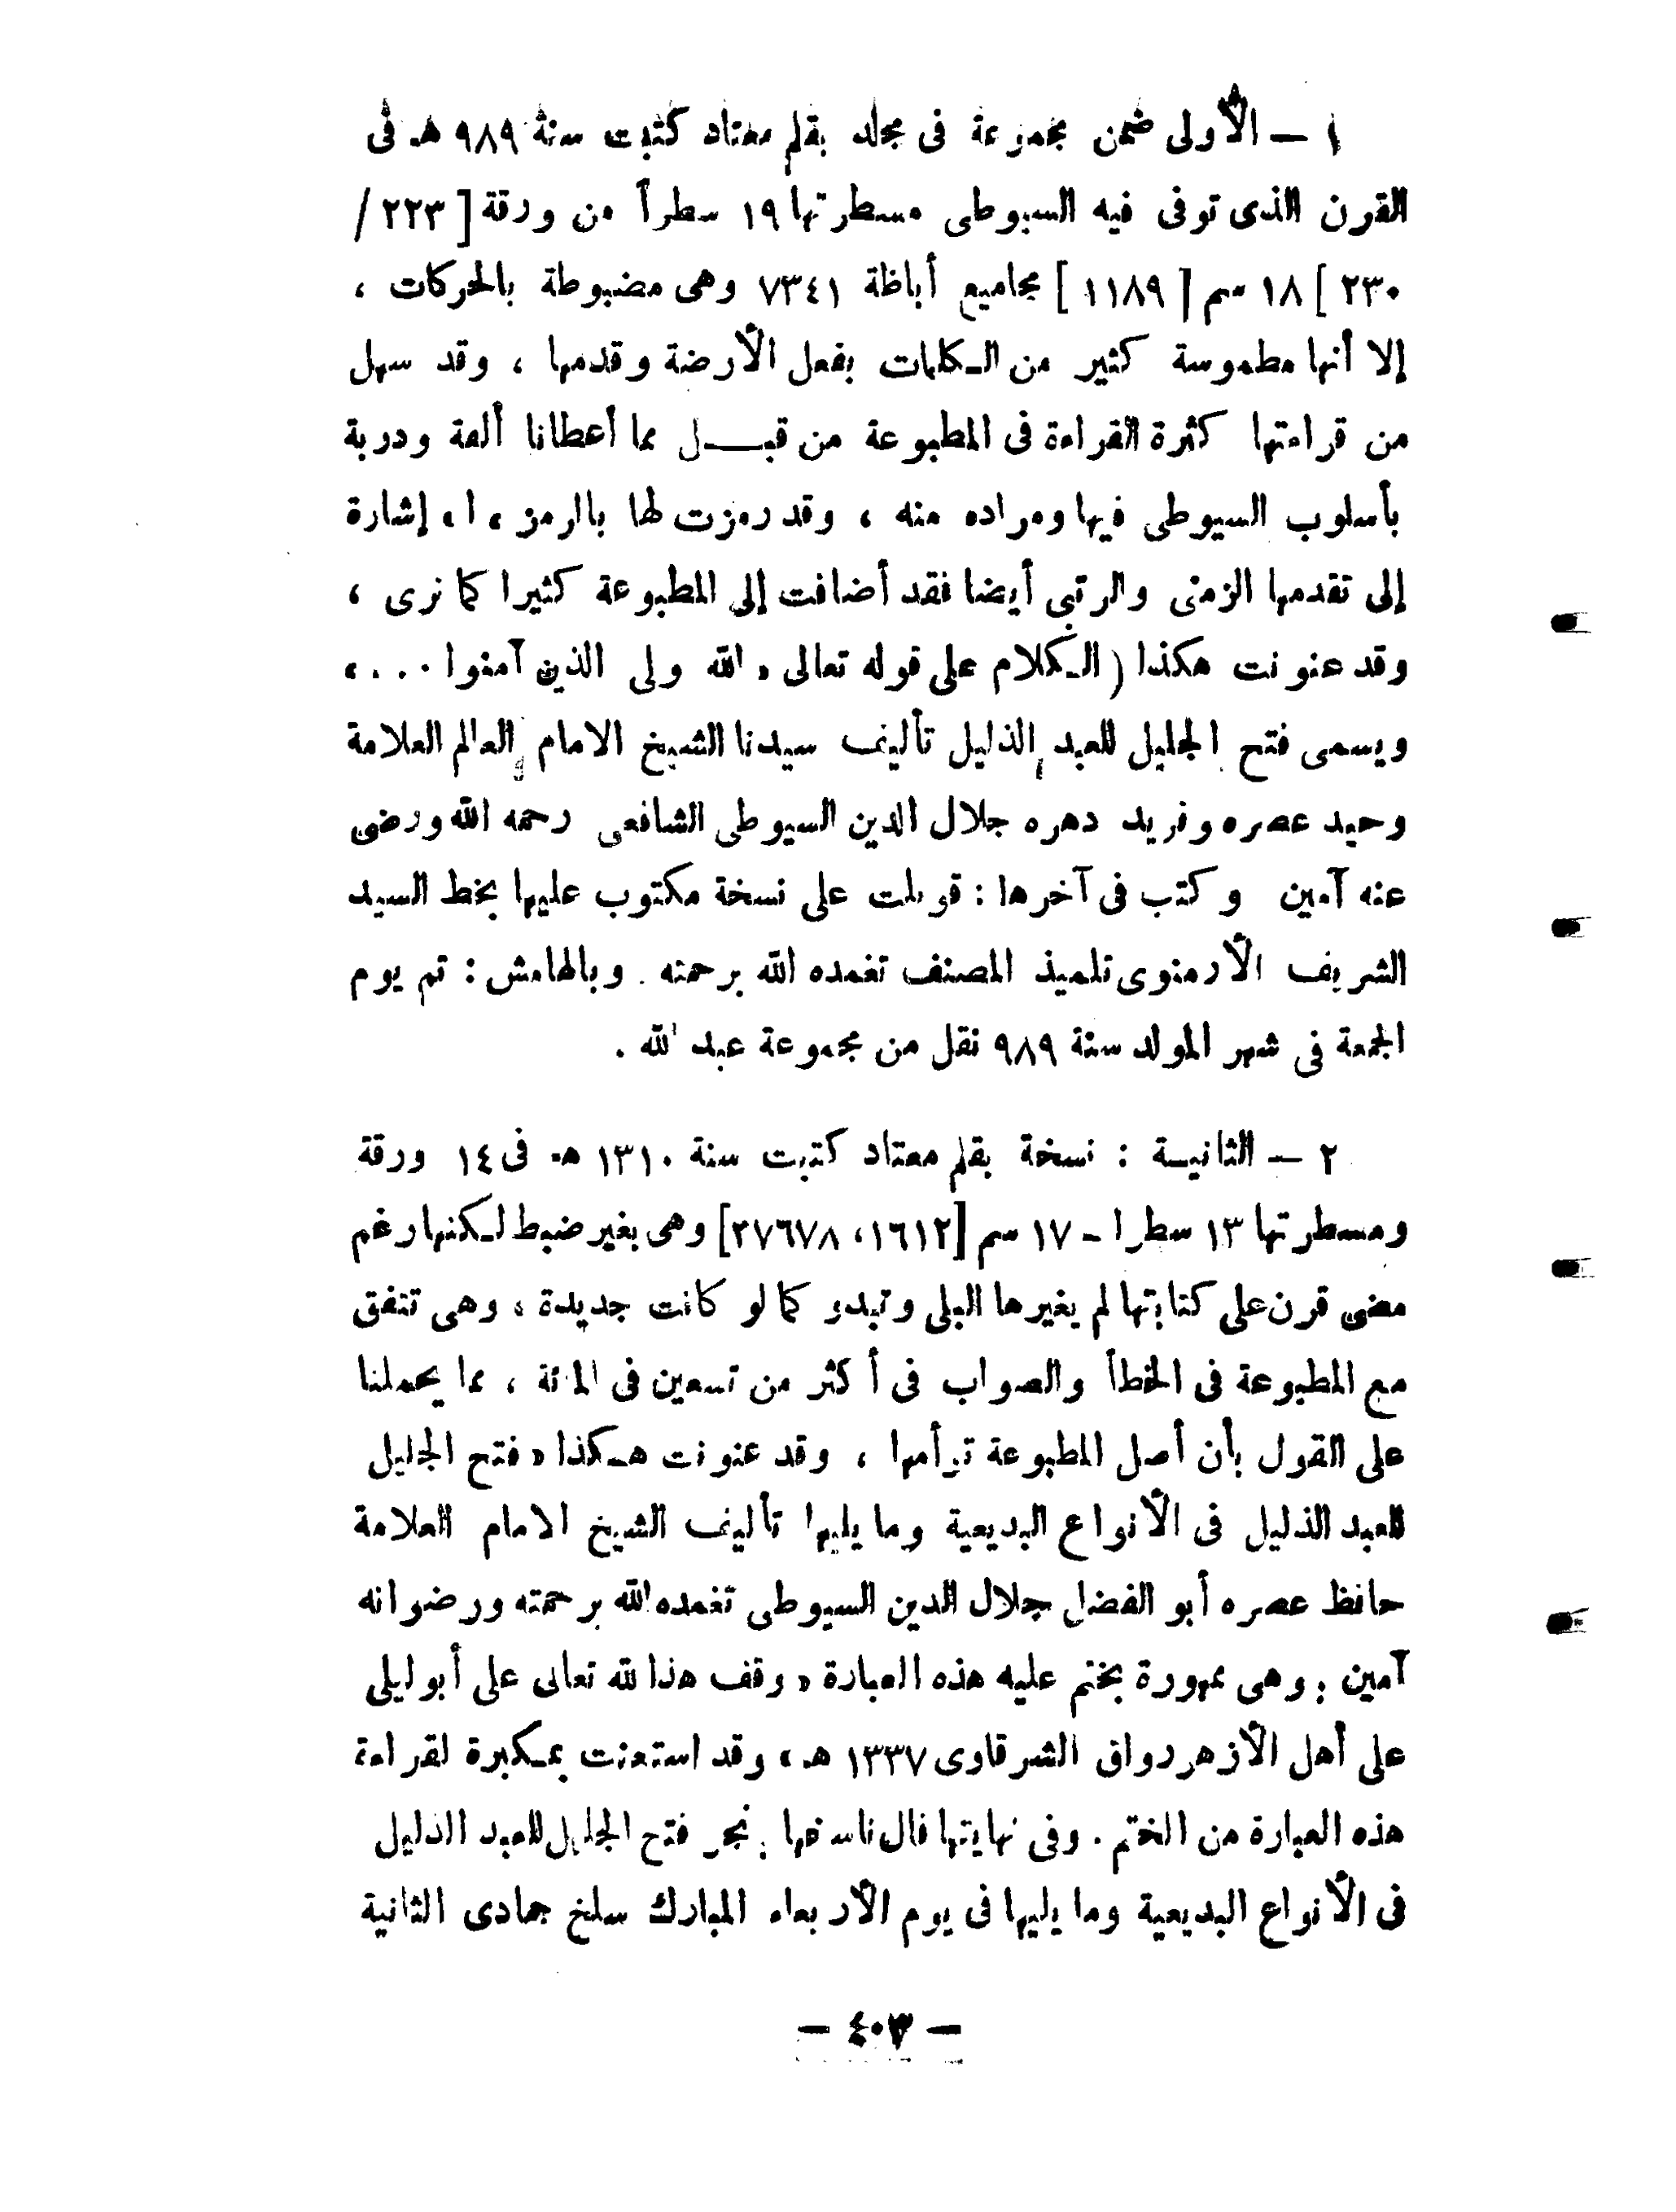 ١ – الأولى ضمن مجموعة فى مجلد بقلم معتاد كتبت سنة ٩٨٩ هـ فى
القرن الذى توفى فيه السيوطى مسطرتها ١٩ سطراً من ورقة [ ٢٢٣ /
٢٣٠ ] ١٨ سم [ ١١٨٩ ] مجاميع أباظة ٧٣٤١ وهى مضبوطة بالحركات ،
إلا أنها مطموسة كثير من الـكلمات بفعل الأرضة وقدمها ، وقد سهل
من قراءتها كثرة القراءة فى المطبوعة من قبـــل مما أعطانا ألفة ودربة
بأسلوب السيوطى فيها ومراده منه ، وقد رمزت لها بالرمز « ا » إشارة
إلى تقدمها الزمنى والرتبى أيضا فقد أضافت إلى المطبوعة كثيرا كما نرى ،
وقد عنونت هكذا ( الـكلام على قوله تعالى « الله ولى الذين آمنوا . . . »
ويسمى فتح الجليل للعبد الذليل تأليف سيدنا الشيخ الامام العالم العلامة
وحيد عصره وفريد دهره جلال الدين السيوطى الشافعى رحمه الله ورضى
عنه آمين وكتب فى آخرها : قوبلت على نسخة مكتوب عليها بخط السيد
الشريف الأرمنوى تلميذ المصنف تغمده الله برحمته . وبالهامش : تم يوم
الجمعة فى شهر المولد سنة ٩٨٩ نقل من مجموعة عبد الله .
٢ – الثانيـة : نسخة بقلم معتاد كتبت سنة ١٣١٠ هـ فى ١٤ ورقة
ومسطرتها ١٣ سطرا - ١٧ سم [١٦١٢ ، ٢٧٦٧٨] وهى بغير ضبط لـكنها رغم
مضى قرن على كتابتها لم يغيرها البلى وتبدو كما لو كانت جديدة ، وهى تتفق
مع المطبوعة فى الخطأ والصواب فى أكثر من تسعين فى المائة ، مما يحملنا
على القول بأن أصل المطبوعة توأمها ، وقد عنونت هـكذا « فتح الجليل
للعبد الذليل فى الأنواع البديعية وما يليها تأليف الشيخ الامام العلامة
حافظ عصره أبو الفضل جلال الدين السيوطى تغمده الله برحمته ورضوانه
آمين : وهى ممهورة بختم عليه هذه العبارة « وقف هذا لله تعالى على أبو ليلى
على أهل الأزهر رواق الشرقاوى ١٣٣٧ هـ » وقد استعنت بمـكبرة لقراءة
هذه العبارة من الختم . وفى نهايتها قال ناسخها : نجز فتح الجليل للعبد الذليل
فى الأنواع البديعية وما يليها فى يوم الأربعاء المبارك سلخ جمادى الثانية
– ٤٠٣ –